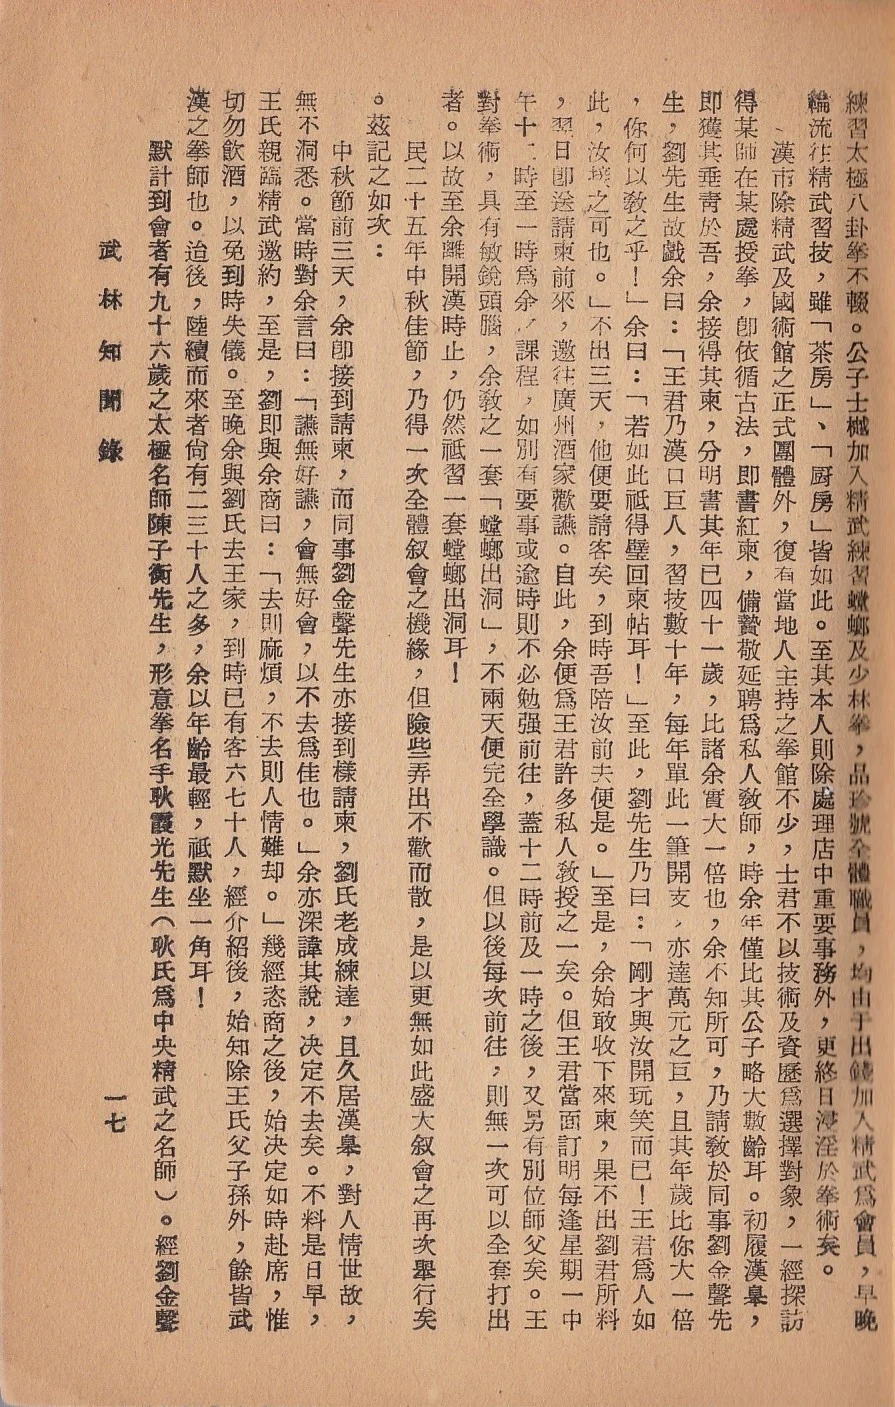 練習太極八卦拳不輟。公子士樾加入精武練習螳螂及少林拳,品珍號全體職員,均由于出錢加入精武爲會員,早晚
輪流往精武習技,雖「茶房」、「厨房」皆如此。至其本人則除處理店中重要事務外,更終日浸淫於拳術矣。
漢市除精武及國術館之正式團體外,復有當地人主持之拳館不少,士君不以技術及資歷爲選擇對象,一經探訪
得某師在某處授拳,卽依循古法,即書紅柬,備贄敬延聘爲私人教師,時余年僅比其公子略大數齡耳。初履漢皋,
即獲其垂靑於吾,余接得其柬,分明書其年已四十一歲,比諸余實大一倍也,余不知所可,乃請教於同事劉金聲先
生,劉先生故戲余曰:「王君乃漢口巨人,習技數十年,每年單此一筆開支,亦達萬元之巨,且其年歲比你大一倍
,你何以教之乎!」余曰:「若如此祗得璧回柬帖耳!」至此,劉先生乃曰:「剛才與汝開玩笑而已!王君爲人如
此,汝接之可也。」不出三天,他便要請客矣,到時吾陪汝前去便是。」至是,余始敢收下來柬,果不出劉君所料
,翌日卽送請柬前來,邀往廣州酒家歡讌。自此,余便爲王君許多私人教授之一矣。但王君當面訂明每逢星期一中
午十二時至一時爲余之課程,如別有要事或逾時則不必勉强前往,蓋十二時前及一時之後,又另有別位師父矣。王
對拳術,具有敏銳頭腦,余教之一套「螳螂出洞」,不兩天便完全學識。但以後每次前往,則無一次可以全套打出
者。以故至余離開漢時止,仍然祗習一套螳螂出洞耳!
民二十五年中秋佳節,乃得一次全體叙會之機緣,但險些弄出不歡而散,是以更無如此盛大叙會之再次舉行矣
。茲記之如次:
中秋節前三天,余卽接到請柬,而同事劉金聲先生亦接到樣請柬,劉氏老成練達,且久居漢皋,對人情世故,
無不洞悉。當時對余言曰:「讌無好讌,會無好會,以不去爲佳也。」余亦深諱其說,决定不去矣。不料是日早,
王氏親臨精武邀約,至是,劉即與余商曰:「去則麻煩,不去則人情難却。」幾經恣商之後,始决定如時赴席,惟
切勿飲酒,以免到時失儀。至晚余與劉氏去王家,到時已有客六七十人,經介紹後,始知除王氏父子孫外,餘皆武
漢之拳師也。迨後,陸續而來者尙有二三十人之多,余以年齡最輕,祗默坐一角耳!
默計到會者有九十六歲之太極名師陳子衡先生,形意拳名手耿霞光先生(耿氏爲中央精武之名師)。經劉金聲
武林知聞錄
一七